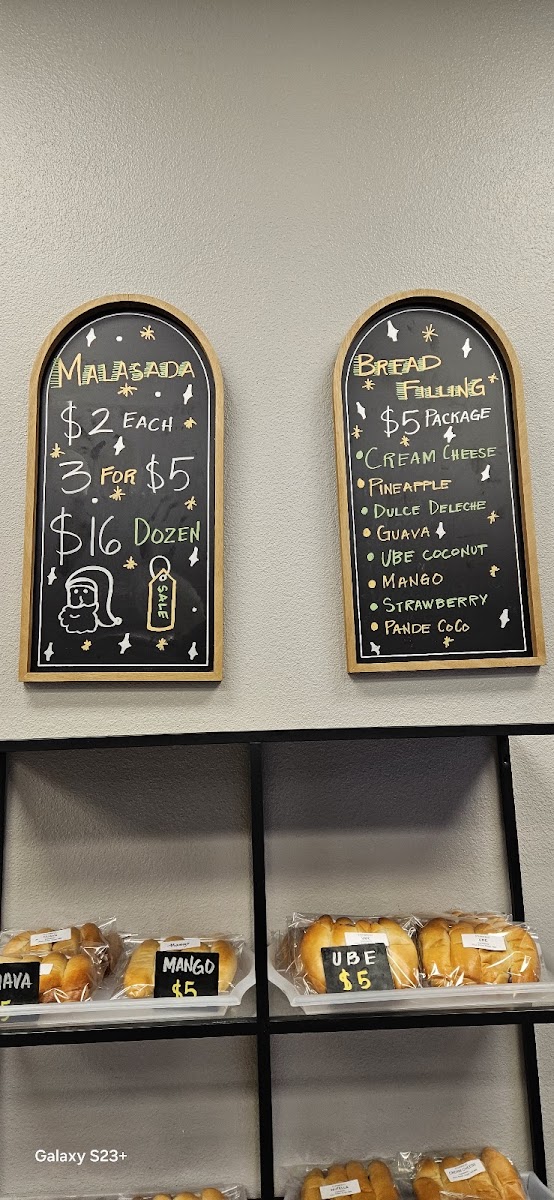 MALASADA
$2 EACH
3 FOR $5
$16 DOZEN
SALE
BREAD
FILLING
$5 PACKAGE
•CREAM CHEESE
•PINEAPPLE
•DULCE DELECHE
•GUAVA
•UBE COCONUT
•MANGO
•STRAWBERRY
•PANDE COCO
MANGO
$5
UBE
$5
UBE
Galaxy S23+